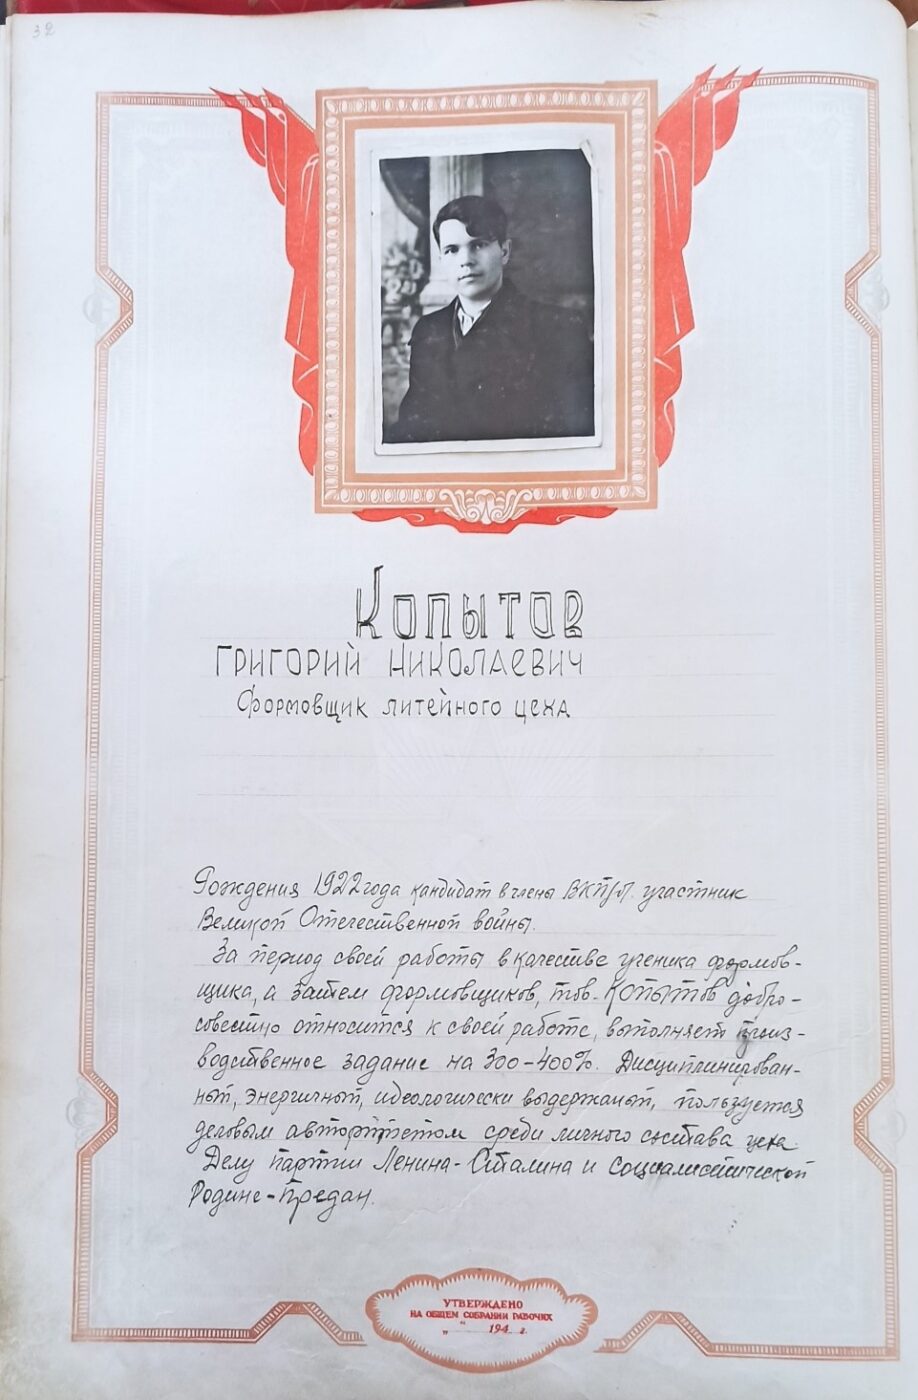 32
Копытов
Григорий Николаевич
Формовщик литейного цеха
Рождения 1922 года кандидат в члены ВКП/б/. участник
Великой Отечественной войны.
За период своей работы в качестве ученика формов-
щика, а затем формовщиков, тов. Копытов добро-
совестно относится к своей работе, выполняет произ-
водственное задание на 300-400%. Дисциплинирован-
ный, энергичный, идеологически выдержаный, пользуется
деловым авторитетом среди личного состава цеха.
Делу партии Ленина-Сталина и социалистической
Родине-предан.
УТВЕРЖДЕНО
НА ОБЩЕМ СОБРАНИИ РАБОЧИХ
„ “ 194 г.